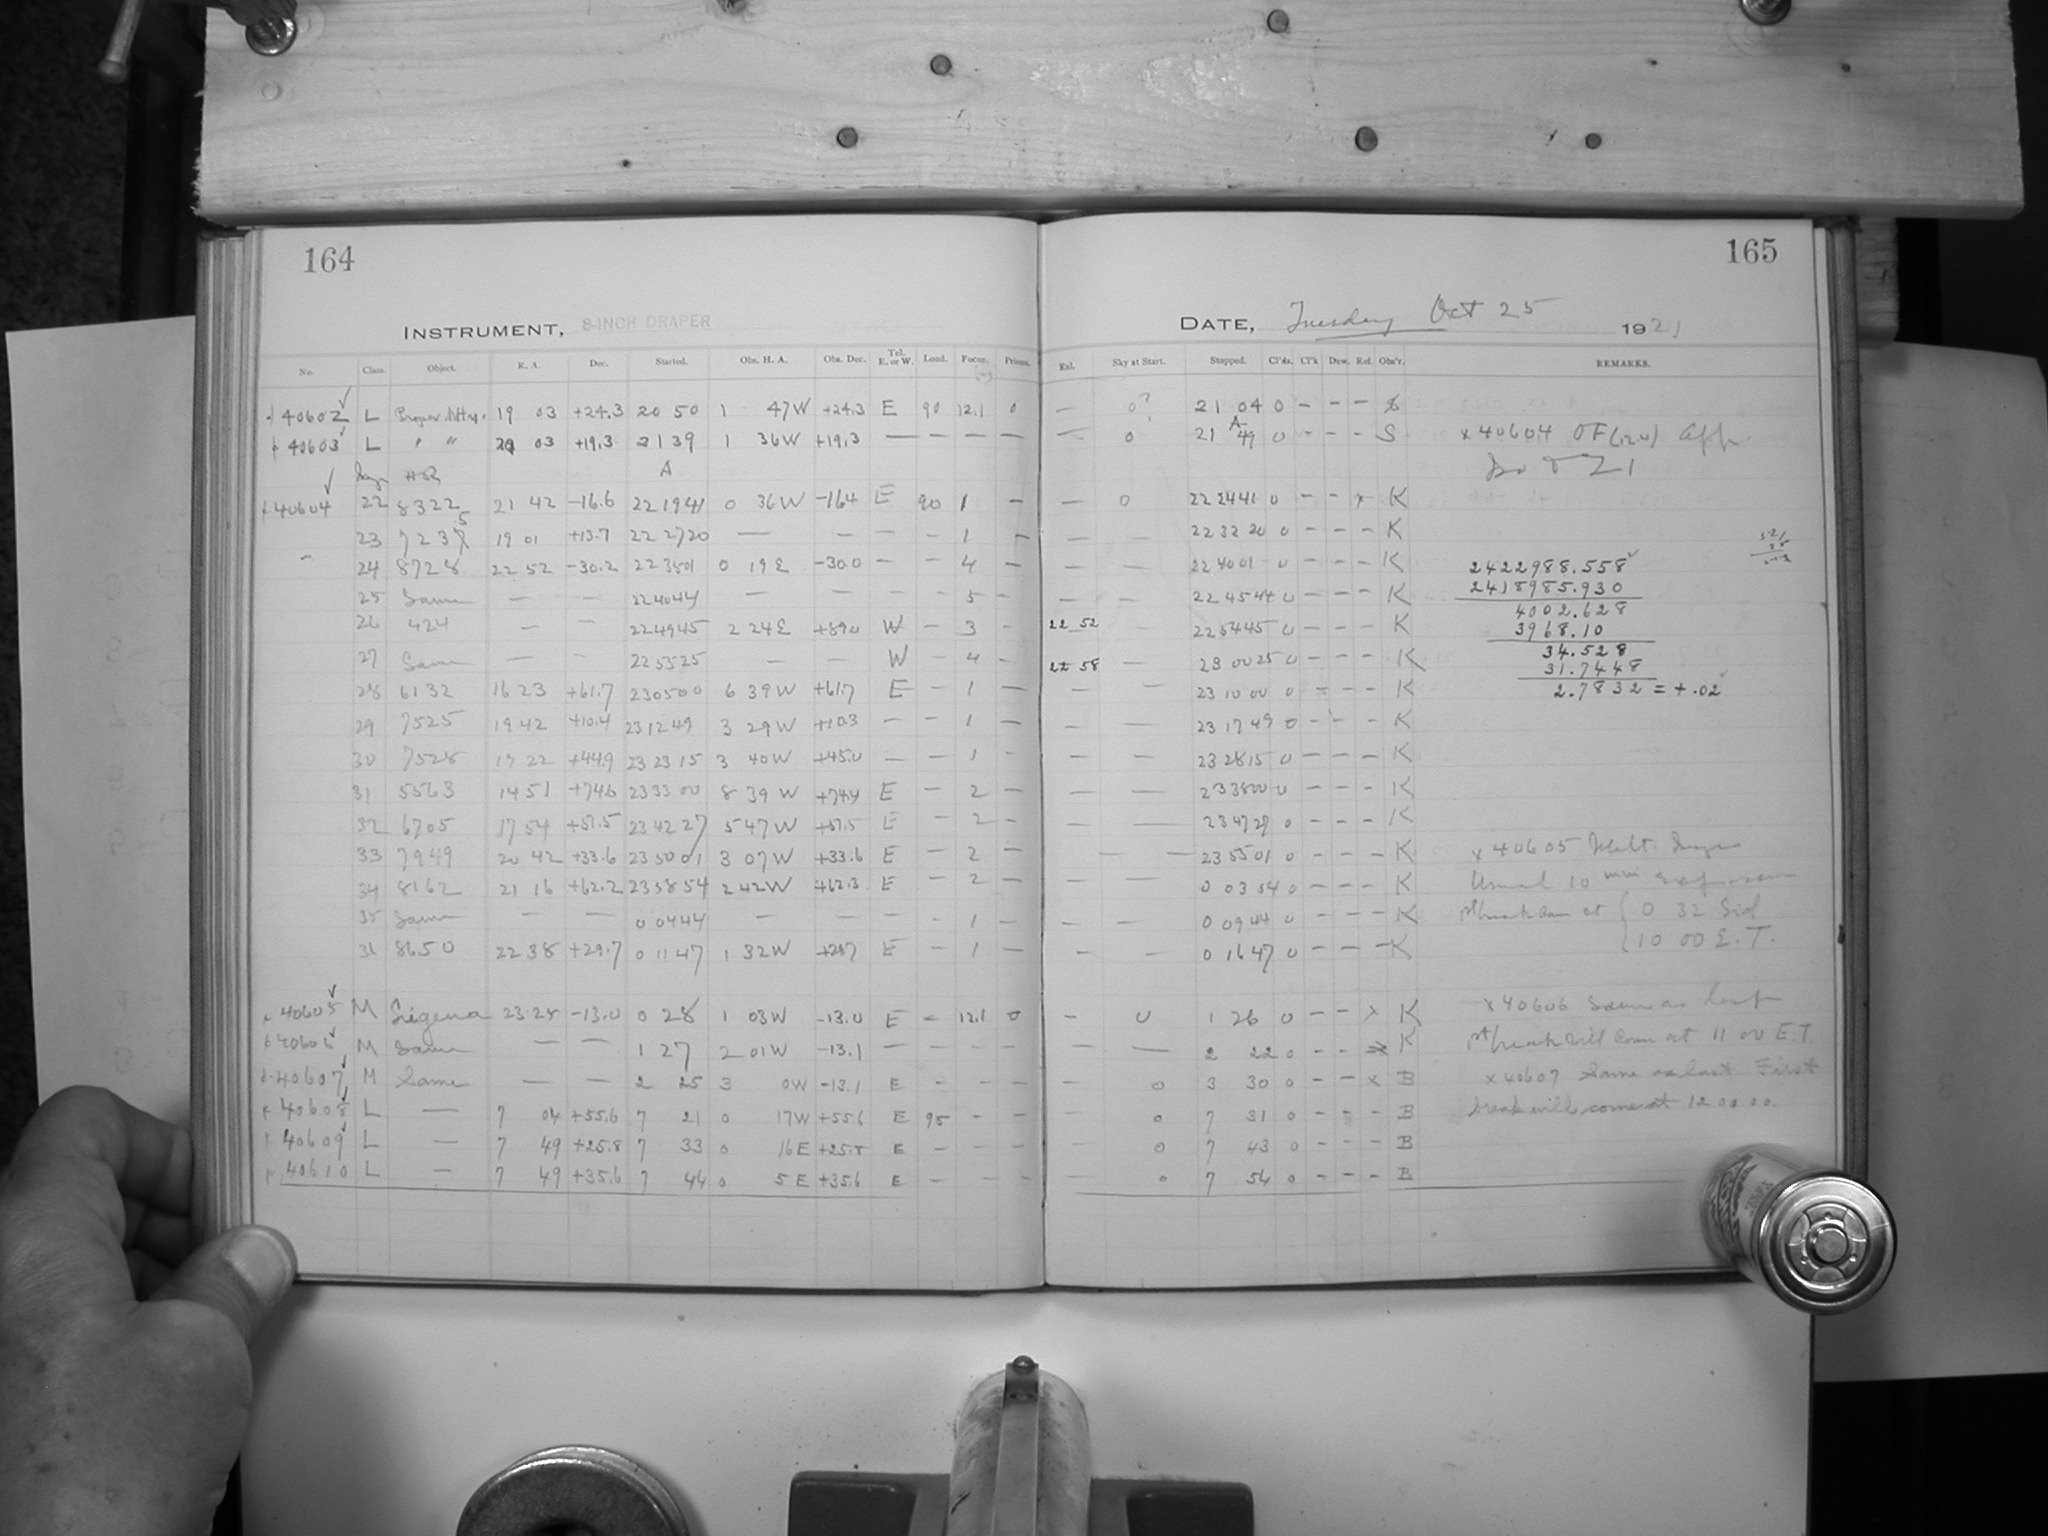 164
INSTRUMENT, 8-INCH DRAPER
No. Class. Object. R. A. Dec. Started. Obs. H. A. Obs. Dec. Tel. E. or W. Load. Focus. Prisms.
40602 L 19 03 +24.3 20 50 1 47W +24.3 E 90 12.1 0
40603 L " " 03 +19.3 21 39 1 36W +19.3 — — — —
A
40604 22 8322 21 42 -16.6 22 19 41 0 36W -16.4 E 90 1 –
23 19 01 +13.7 22 27 20 — – – – 1 –
24 8728 22 52 -30.2 22 35 01 0 19E -30.0 – – 4 –
25 Same — — 22 40 44 — – – – 5 –
26 424 – – 22 49 45 2 24E +89.0 W – 3 –
27 Same — – 22 55 25 – – W – 4 –
28 6132 16 23 +61.7 23 05 00 6 39W +61.7 E – 1 –
29 7525 19 42 +10.4 23 12 49 3 29W +10.3 – – 1 –
30 7528 19 22 +44.9 23 23 15 3 40W +45.0 – – 1 –
31 5563 14 51 +74.6 23 33 00 8 39W +74.4 E – 2 –
32 6705 17 54 +51.5 23 42 27 5 47W +51.5 E – 2 –
33 7949 20 42 +33.6 23 50 01 3 07W +33.6 E – 2 –
34 8162 21 16 +62.2 23 58 54 2 42W +62.3 E – 2 –
35 Same — — 0 04 44 – – – – 1 –
36 8650 22 38 +29.7 0 11 47 1 32W +29.7 E – 1 –
40605 M 23 25 -13.0 0 28 1 03W -13.0 E – 12.1 0
40606 M Same — — 1 27 2 01W -13.1 – – – –
40607 M Same — — 2 25 3 0W -13.1 E – – –
40608 L — 7 04 +55.6 7 21 0 17W +55.6 E 95 – –
40609 L — 7 49 +25.8 7 33 0 16E +25.8 E – – –
40610 L — 7 49 +35.6 7 44 0 5E +35.6 E – – –
165
DATE, Tuesday Oct 25 1921
Exl. Sky at Start. Stopped. Cl'ds. Cl'k Dew. Ref. Obs'r. REMARKS.
— 0? 21 04 0 – – – S
A
— 0 21 49 0 – – – S x 40604 OF (12.0) App.
— 0 22 24 41 0 – – x K
— — 22 32 20 0 – – – K
— — 22 40 01 0 – – – K 2422988.558
— — 22 45 44 0 – – – K 2418985.930
4002.628
22 52 — 22 54 45 0 – – – K 3968.10
34.528
22 58 — 23 00 25 0 – – – K 31.7448
— — 23 10 00 0 – – – K 2.7832 = +.02
— — 23 17 49 0 – – – K
— — 23 28 15 0 – – – K
— — 23 38 00 0 – – – K
— — 23 47 27 0 – – – K
— — 23 55 01 0 – – – K x 40605
— — 0 03 54 0 – – – K Usual 10 min exposures
— — 0 09 44 0 – – – K 1st break came at 0 32 Sid
10 00 E.T.
— — 0 16 47 0 – – – K
— 0 1 26 0 – – x K x 40606 Same as last
— — 2 22 0 – – K 1st break will come at 11 00 E.T.
— 0 3 30 0 – – x B x 40607 Same as last First
— 0 7 31 0 – – – B break will come at 12 00 00.
— 0 7 43 0 – – – B
— 0 7 54 0 – – – B